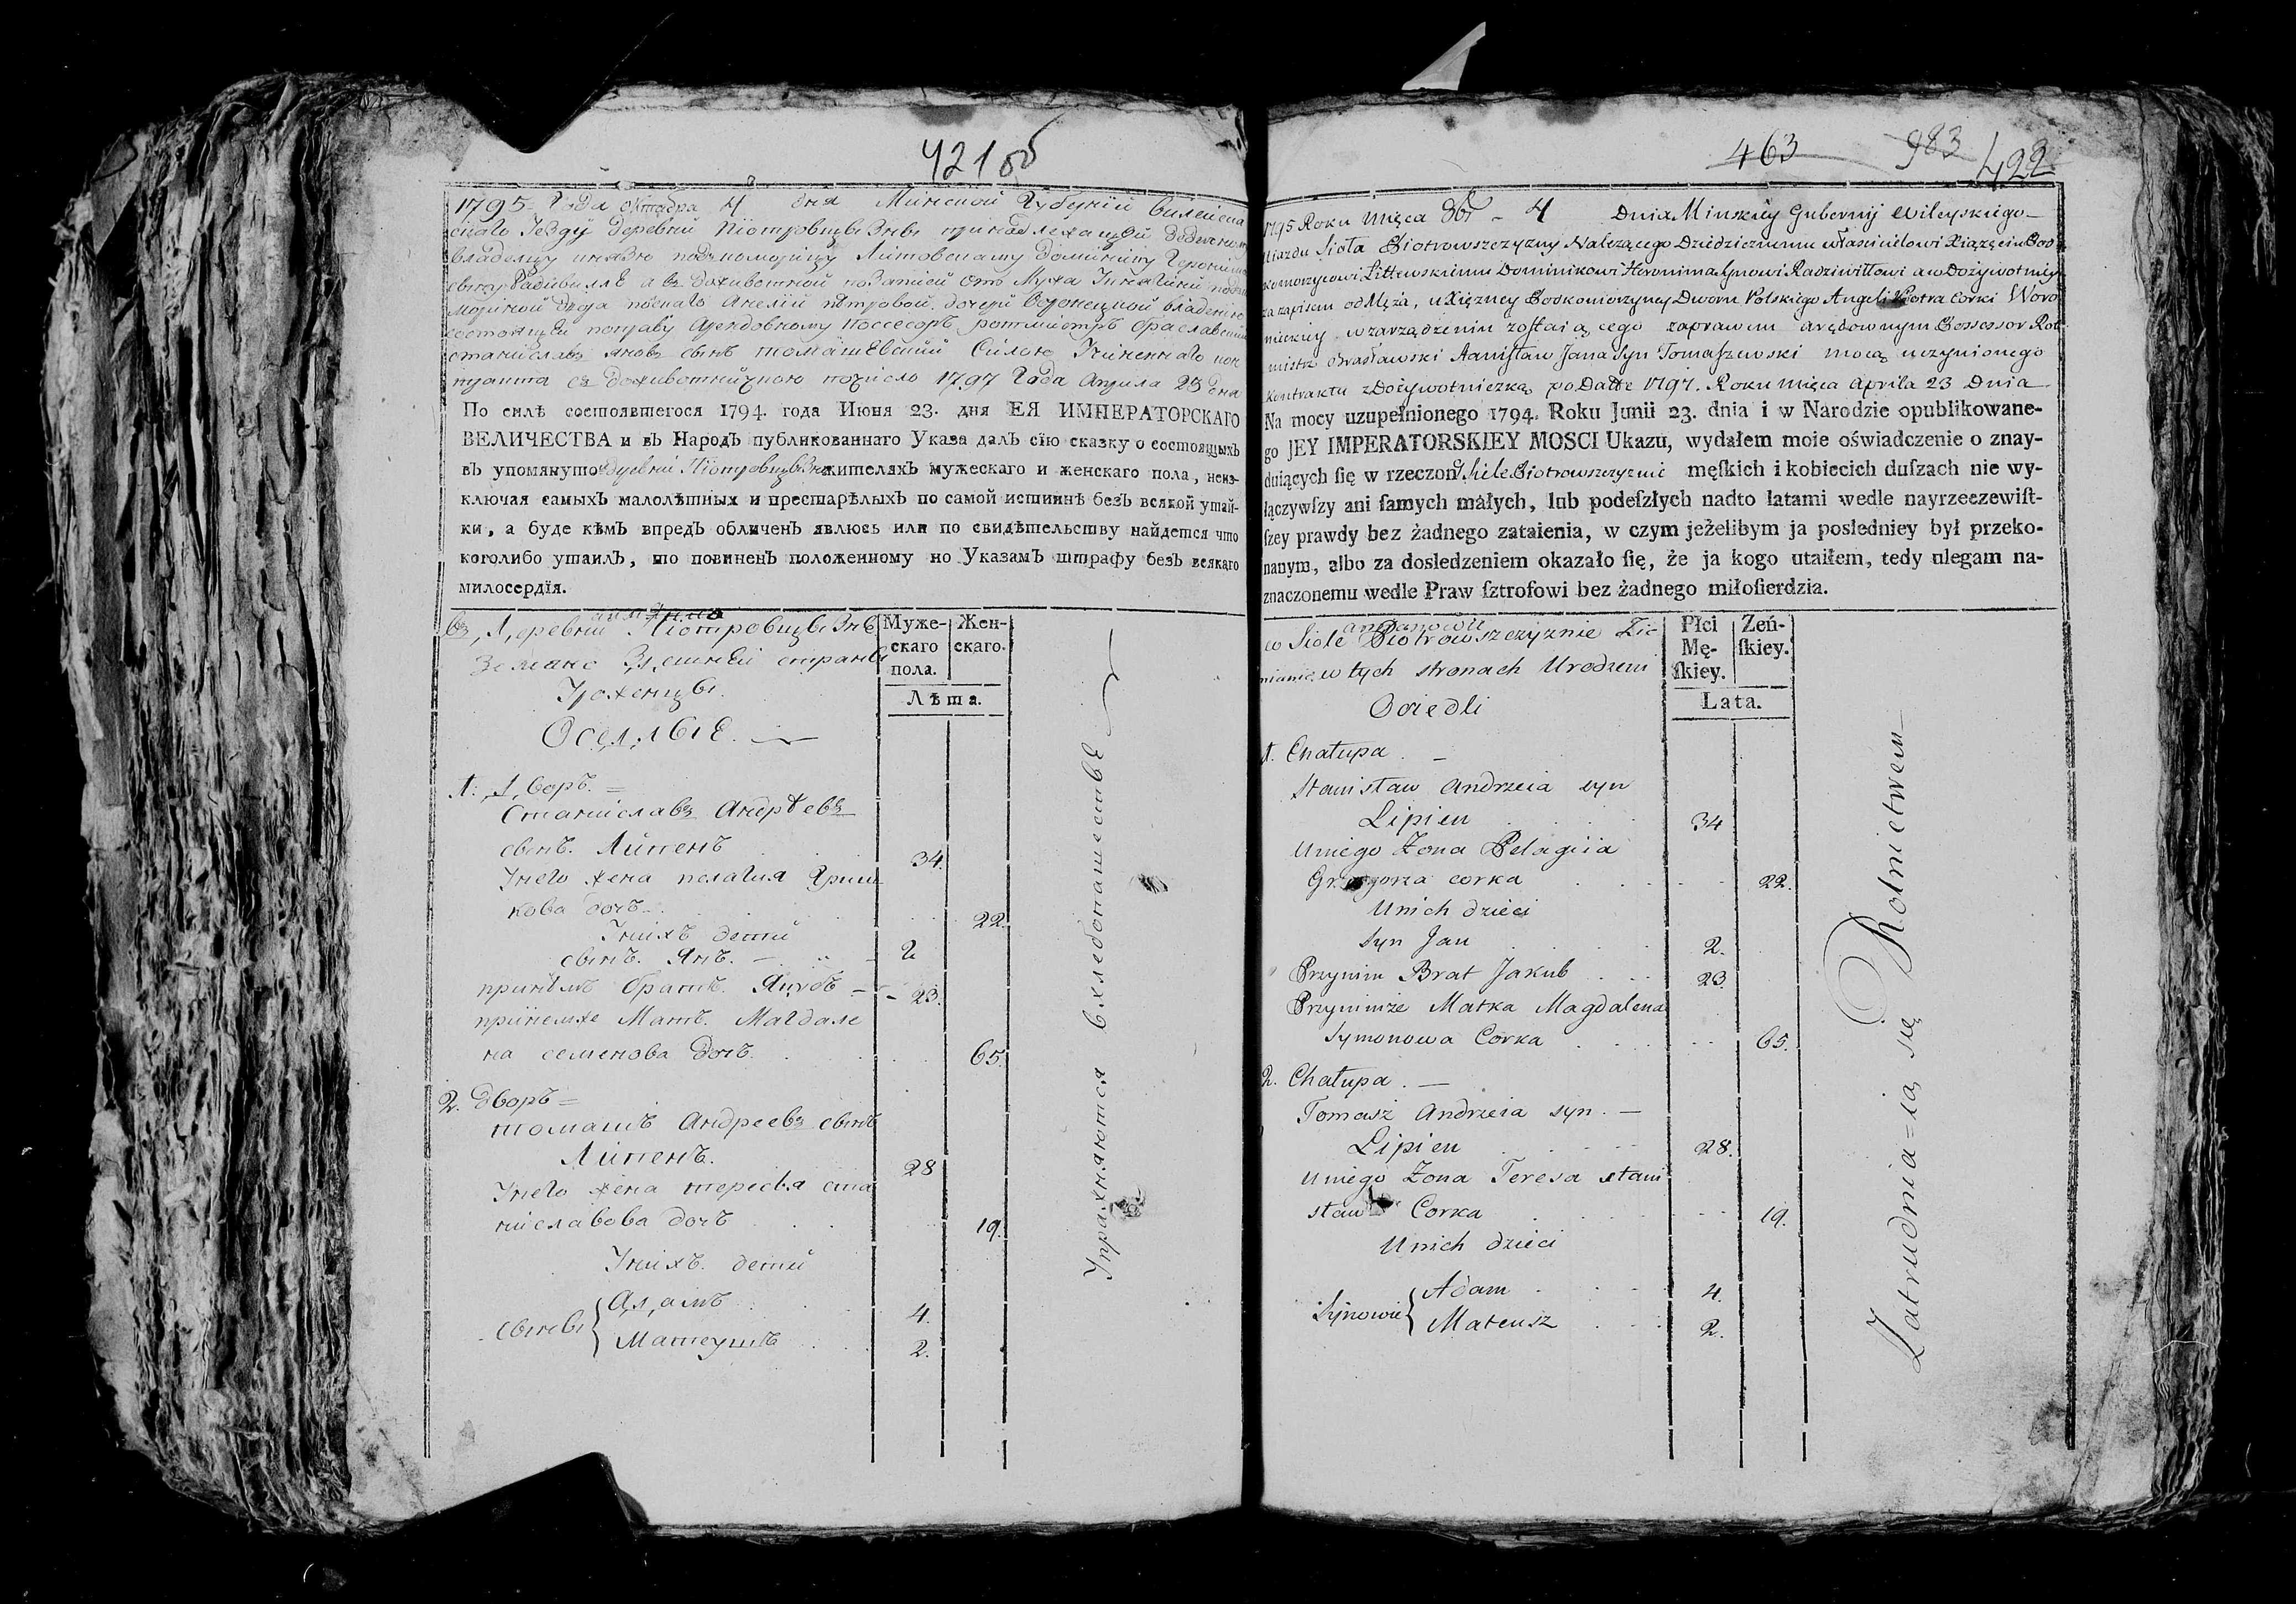 421 об
1795 = Года октября 4 дня Минской Губернïи Вилейска
скаго Уезду деревни Пïотровщызны принадлежащей Дедичному
владельцу князю подкоморжыцу Литовскому Доминику Геронимо
свыну Радивиллѣ а въ доживотной по записи отъ Мужа Княгини подко
моржиной двора польскаго Анелïи петровой дочери Воронецкой владению
состоящей поправу Арендовному Поссесоръ ротмистръ браславский
станиславъ яновъ сынъ томашевский Силою Учиненнаго кон
тракта съ доживотничкою почисло 1797 Года Апрыля 23 дня
По силѣ состоявшегося 1794. года Июня 23. дня ЕЯ ИМПЕРАТОРСКАГО
ВЕЛИЧЕСТВА и въ Народъ публикованнаго Указа далъ сїю сказку о состоящыхъ
въ упомянутой деревни Пïотровщызны жителяхъ мужескаго и женскаго пола, неиз-
ключая самыхъ малолѣтныхъ и престарѣлыхъ по самой истиннѣ безъ всякой утай-
ки, а буде кѣмъ впредь обличенъ явлюсь или по свидѣтельству найдется что
коголибо утаилъ, то повиненъ положенному по Указамъ штрафу безъ всякаго
милосердїя.
въ Деревни Пïотровщызнѣ
Земляне Здешней страны
Уроженцы
Оседлые.
Муже- скаго пола. Жен- скаго.
Лѣта.
1. Дворъ. =
Станиславъ Андрѣевъ
сынъ. Липень 34.
Унего жена пелагия Гриш
кова дочь 22.
Унихъ дети
сынъ. Янъ. 2
принѣмъ братъ. Якубъ 23.
принемже Мать. Магдале
на семенова дочь. 65.
2. дворъ =
томашъ Андреевъ сынъ
Липень. 28
Унего жена тересия ста
ниславова дочь 19.
Унихъ. дети
сыны { Адамъ 4.
Матеушъ 2.
Упражняются в хлебопашестве
463 983 422
1795 Roku Mięca 8br - 4 Dnia Minskiey Gubernij Wileyskiego
Uiazdu Sioła Piotrowszczyzny Należącego Dziedzicznemu właścicielowi Xiązęciu Pod
komorzycowi Littewskiemu Dominikowi Hieronima Synowi Radziwiłłowi a w Dożywotniey
za zapisem od Męża, u Xięzney Podkomorzyney Dworu Polskiego Angeli Piotra Corki Woro
nieckiey w zarządzeniu zostaiącego zaprawem arędownym Possessor Rot
mistrz Brasławski Stanisław Jana Syn Tomaszewski mocą uczynionego
Kontraktu z Dożywotniczką po Datte 1797. Roku Mięca Aprila 23 Dnia
Na mocy uzupełnionego 1794. Roku Junii 23. dnia i w Narodzie opublikowane-
go JEY IMPERATORSKIEY MOSCI Ukazu, wydałem moie oświadczenie o znay-
duiących ſię w rzeczoney Siele Piotrowszczyznie męſkich i kobiecich duſzach nie wy-
łączywſzy ani ſamych małych, lub podeſzłych nadto latami wedle nayrzeczewiſt-
ſzey prawdy bez żadnego zataienia, w czym jeżelibym ja posledniey był przeko-
nanym, albo za dosledzeniem okazało ſię, że ja kogo utaiłem, tedy ulegam na-
znaczonemu wedle Praw ſztrofowi bez żadnego miłoſierdzia.
w Siole Piotrowszczyznie Zie
mianie w tych stronach Urodzeni
Osiedli
Płci Mę- ſkiey. Zeń- ſkiey.
Lata.
1. Chałupa. —
Stanisław Andrzeia syn
Lipien 34
Uniego Zona Pelagiia
Grzegorza corka 22.
Unich dzieci
Syn Jan 2.
Przynim Brat Jakub 23.
Przynimże Matka Magdalena
Symonowa Corka 65.
2. Chałupa. —
Tomasz Andrzeia syn. —
Lipien 28.
Uniego Zona Teresa stani
sław Corka 19.
Unich dzieci
Synowie { Adam 4.
Mateusz 2.
Zatrudnia=ią się Rolnictwem